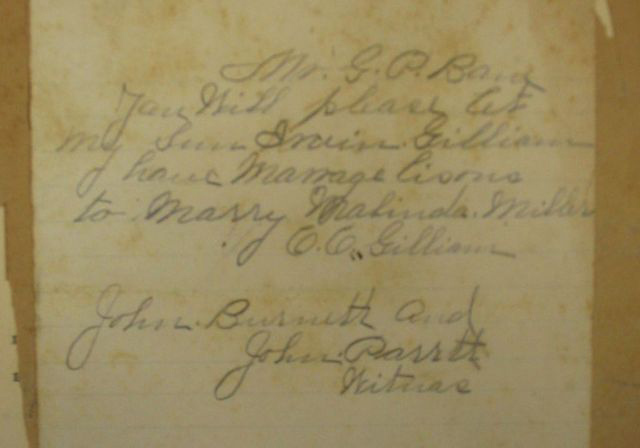 Mr. G. P. Bane
You Will please let
my Sun Irvin Gilliam
have Marrage lisons
to Marry Malinda. Miller
C. C. Gilliam
John. Burnett and
John. Parrett
Witnas